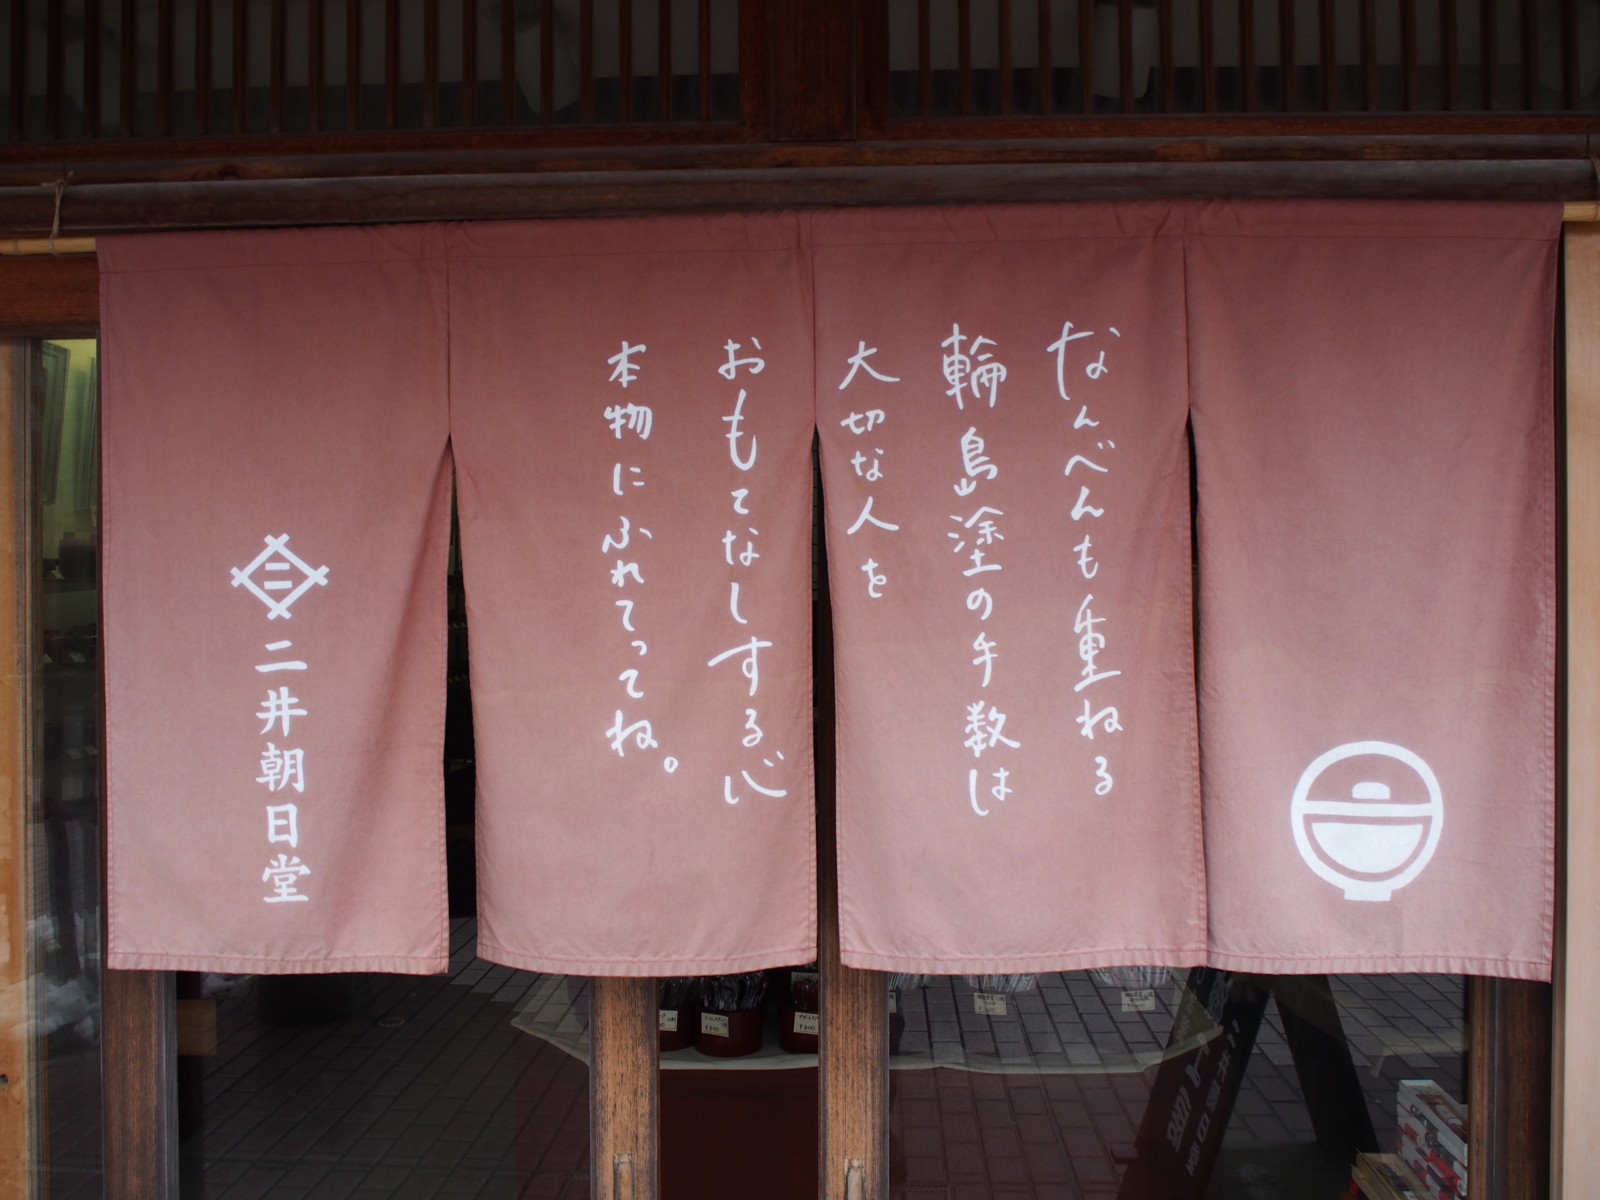 なんべんも重ねる
輪島塗の手数は
大切な人を
おもてなしする心
本物にふれてってね。
二
二井朝日堂